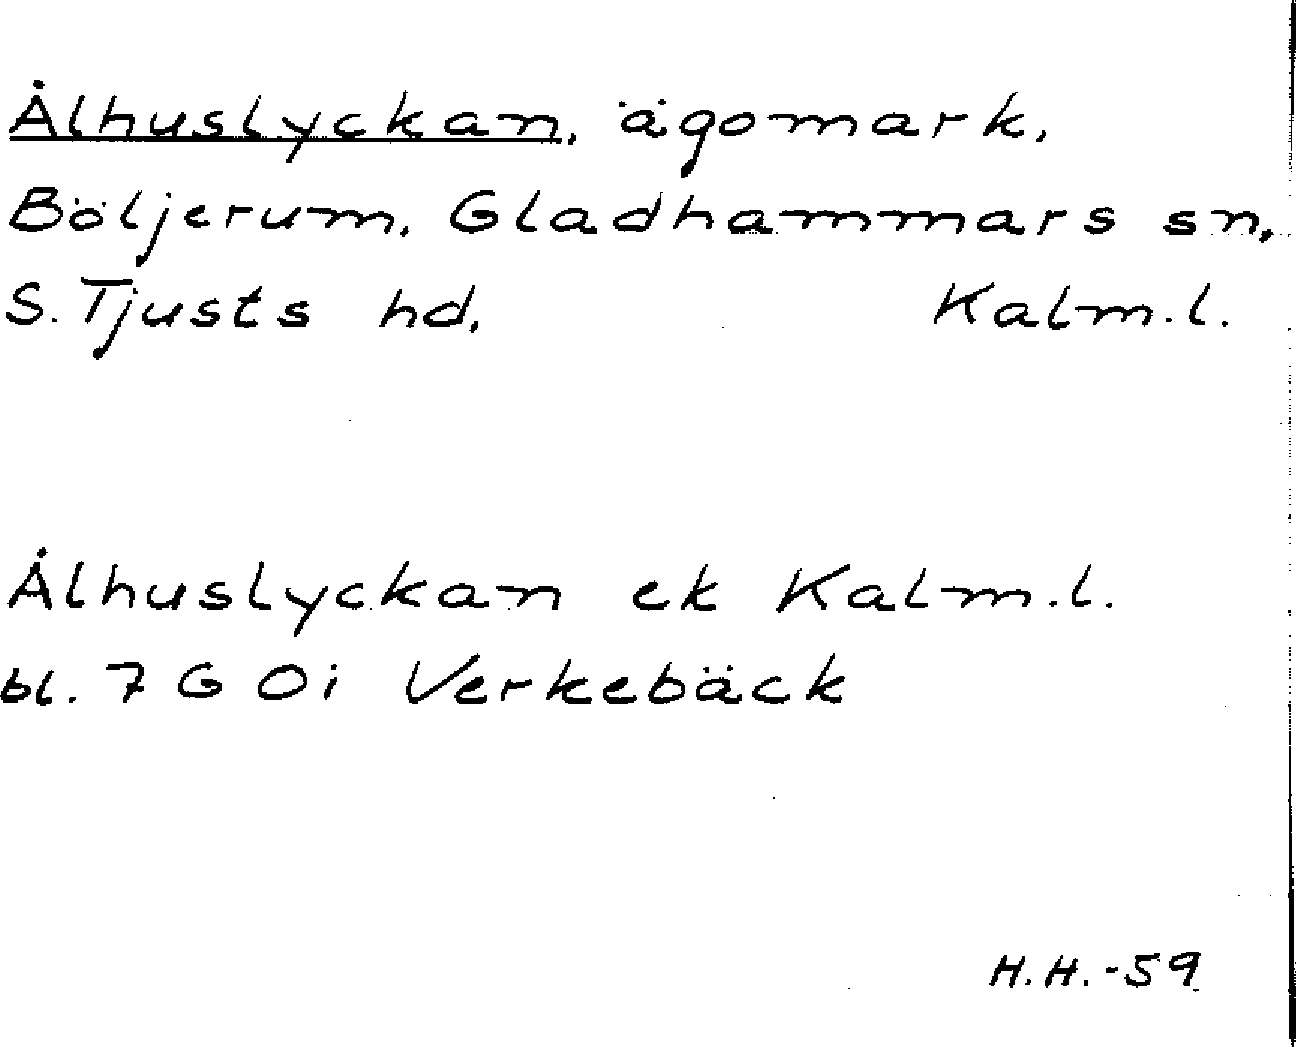 Ålhuslyckan, ägomark,
Böljerum, Gladhammars sn,
S. Tjusts hd, Kalm.l.
Ålhuslyckan ek Kalm.l.
bl. 7 G 0i Verkebäck
H.H.-59